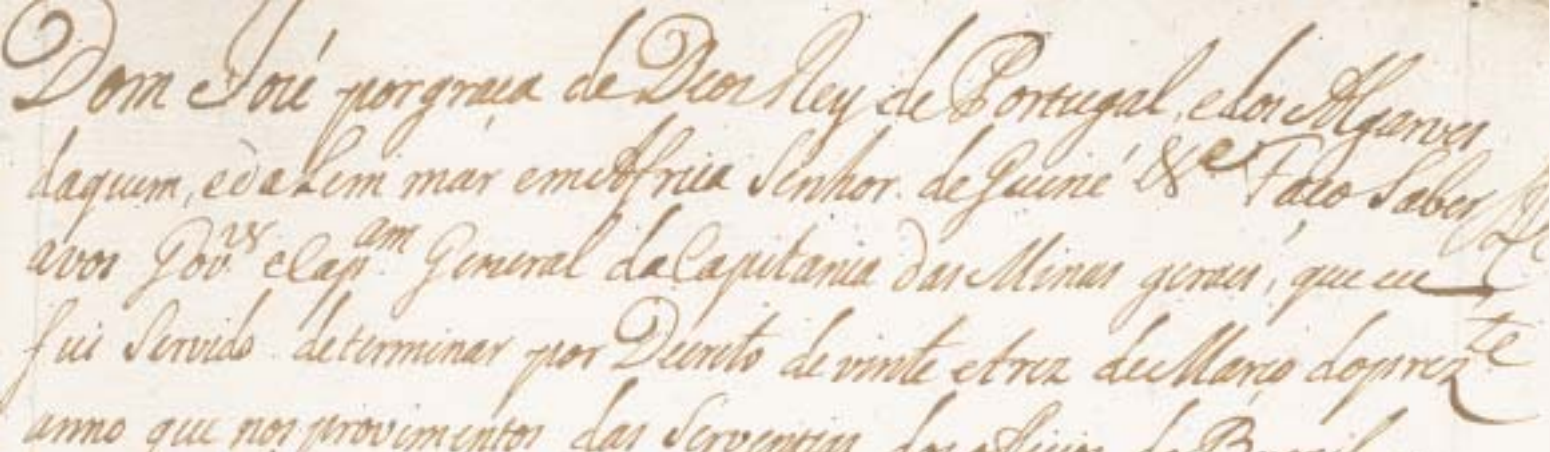 Dom José por graça de Deos Rey de Portugal, e dos Algarves
daquem, e dalem mar em Africa Senhor de Guiné &ª Faço Saber
avos Gov.or e Cap.am General da Capitania das Minas geraes, que eu
fui Servido determinar por Decreto de vinte e trez de Março do prez.te
anno que nos provimentos das Serventias dos officios do Brazil